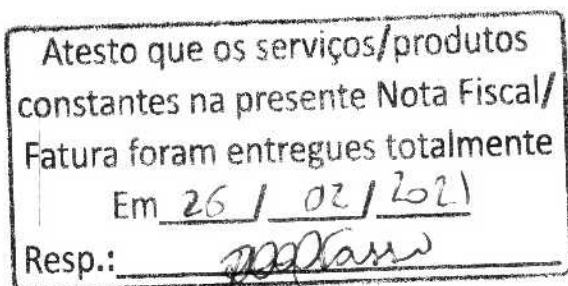 Atesto que os serviços/produtos
constantes na presente Nota Fiscal/
Fatura foram entregues totalmente
Em 26 / 02 / 2021
Resp.: